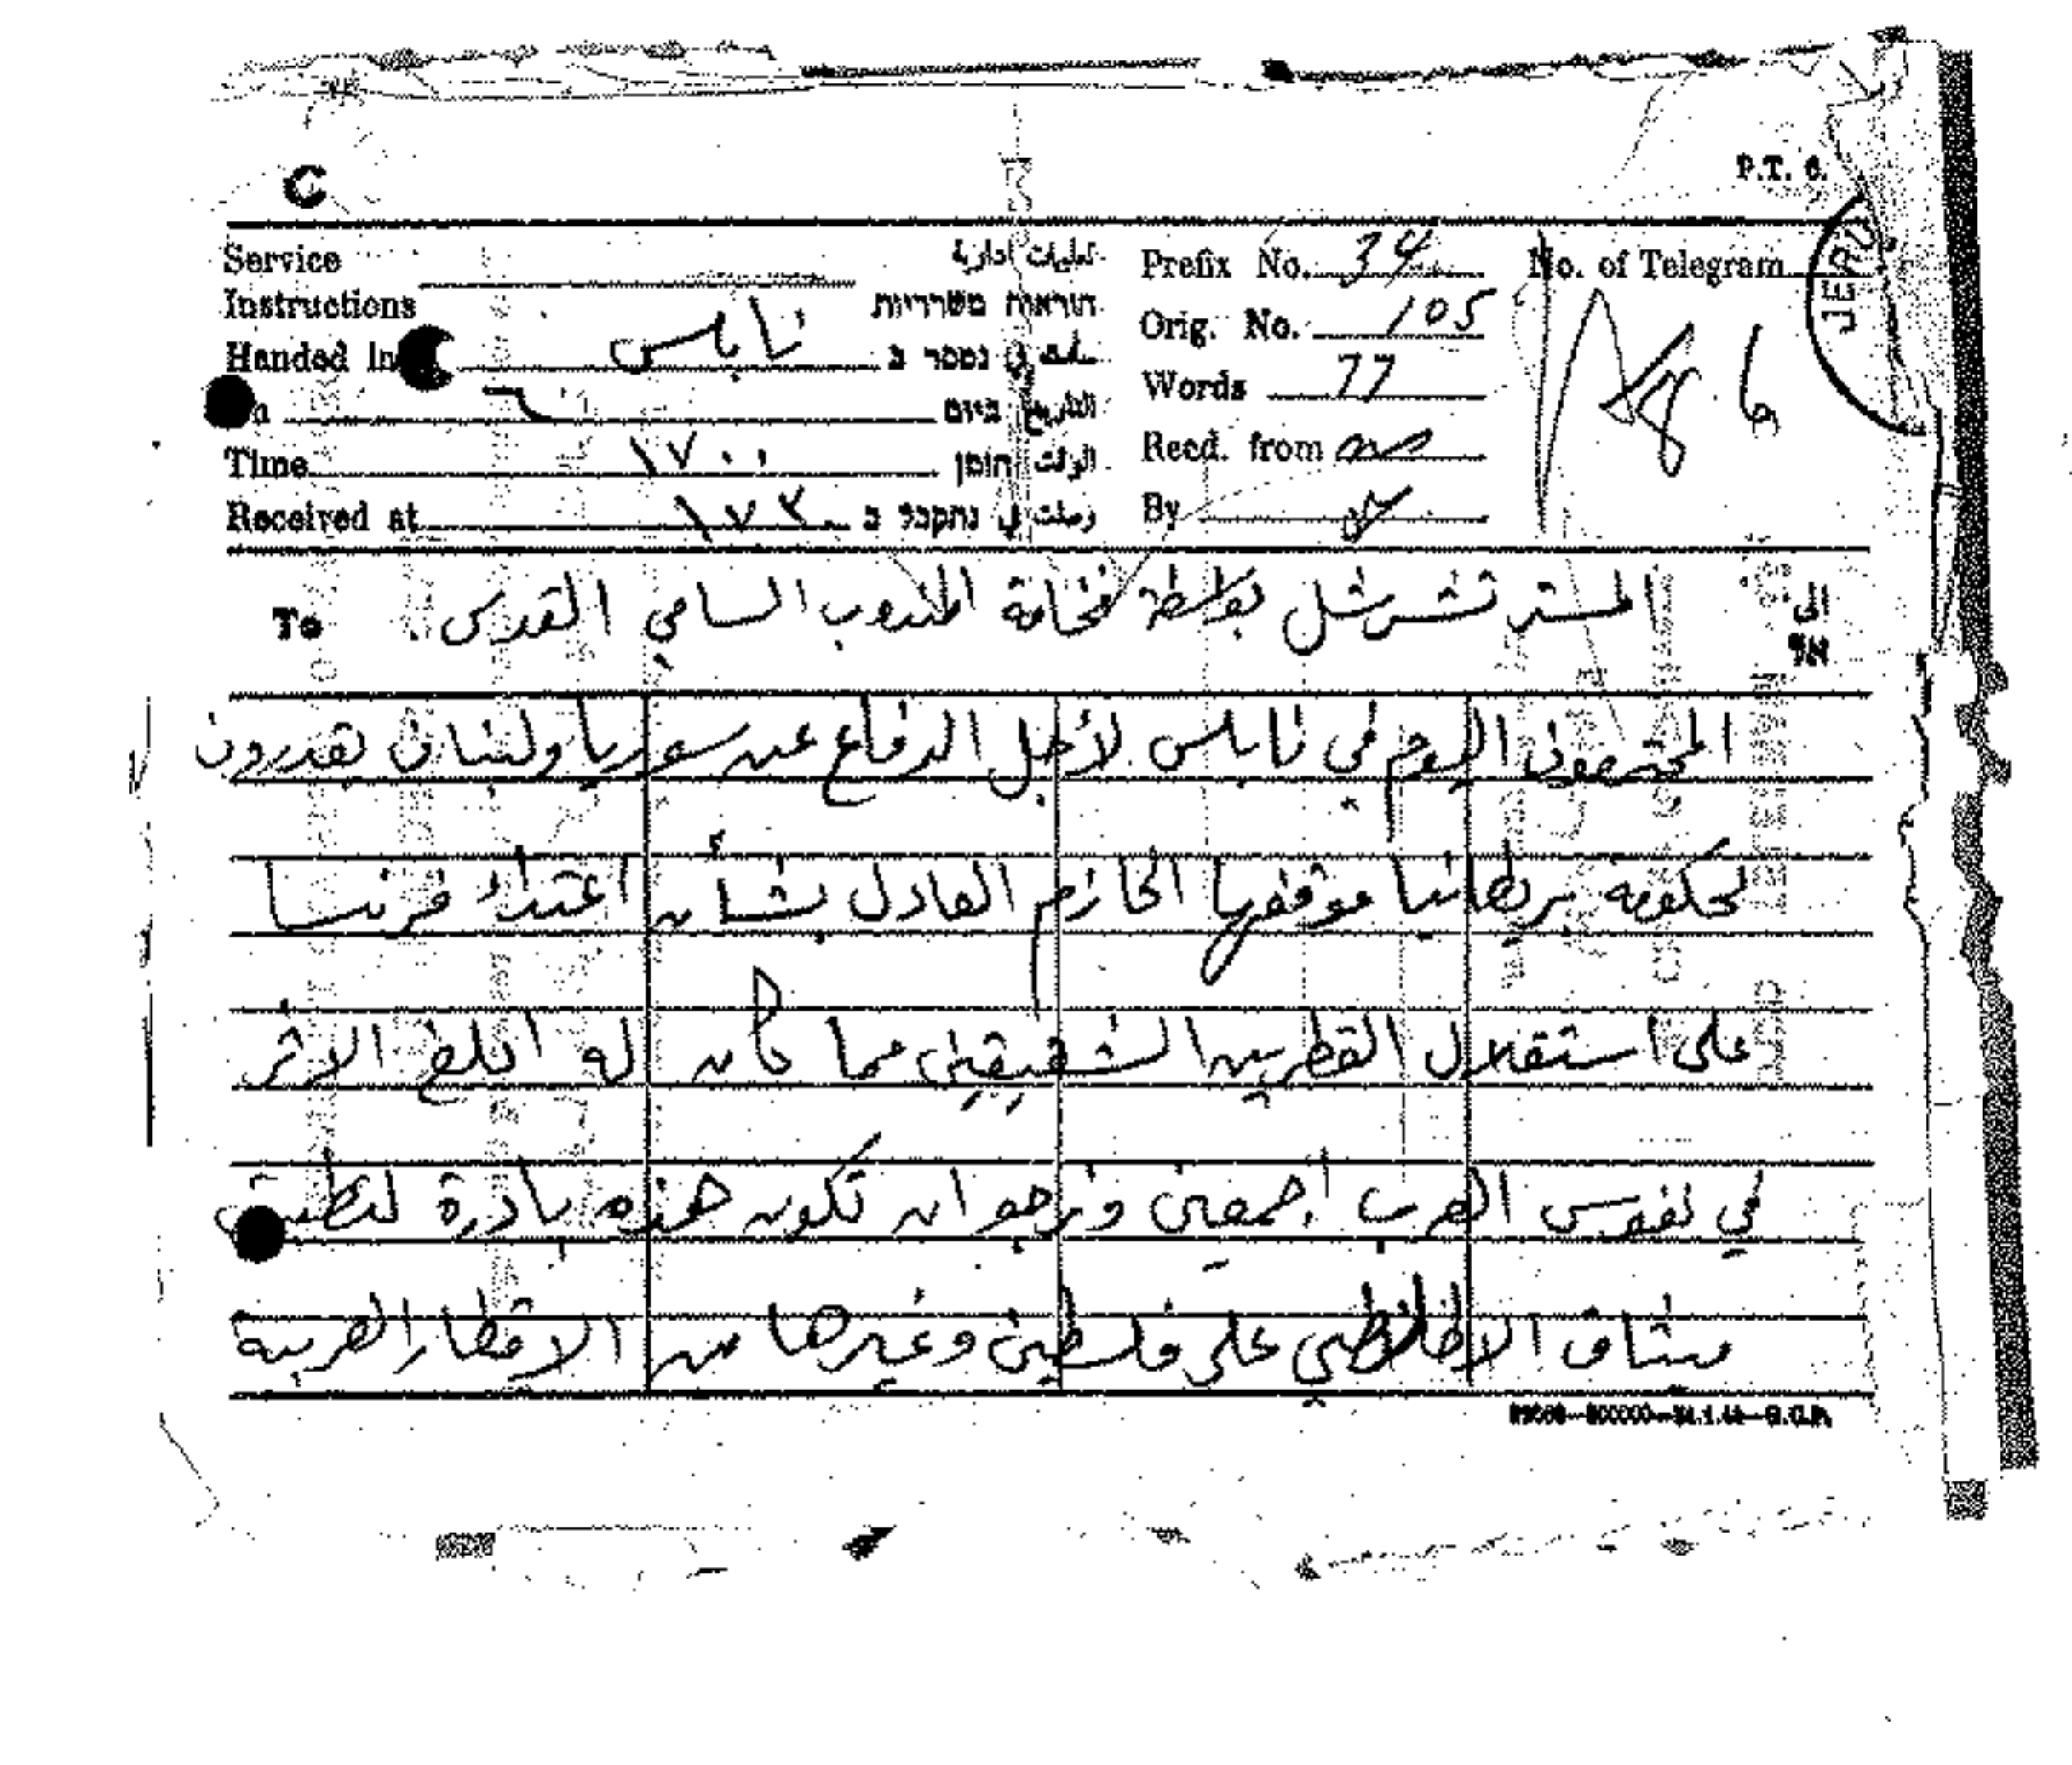 C
P.T. 6.
Service Instructions تعليمات ادارية הוראות משרדיות
Prefix No. 34
No. of Telegram
Orig. No. 105
Handed in نابلس سلمت في נמסר ב
Words 77
التاريخ ביום
Time ١٧٠٠ الوقت הזמן
Recd. from
Received at ١٧٣٠ وصلت في נתקבל ב
By
JERU
To المستر تشرشل بواسطة فخامة المندوب السامي القدس الى אל
المجتمعون اليوم في نابلس لأجل الدفاع عن سوريا ولبنان يقدرون
لحكومة بريطانيا موقفها الحازم العادل بشأن اعتداء فرنسا
على استقلال القطرين الشقيقين مما كان له ابلغ الاثر
في نفوس العرب اجمعين ونرجو ان تكون هذه بادرة لتطبيق
ميثاق الاطلانطي على فلسطين وغيرها من الاقطار العربية